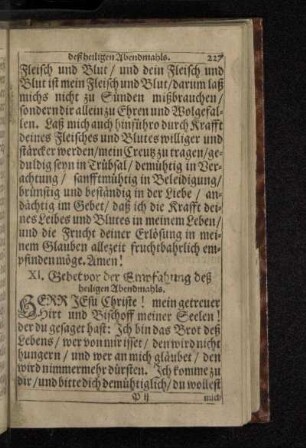 deß heiligen Abendmahls. 227
Fleisch und Blut / und dein Fleisch und
Blut ist mein Fleisch und Blut / darum laß
michs nicht zu Sünden mißbrauchen /
sondern dir allein zu Ehren und Wolgefal-
len. Laß mich auch hinführo durch Krafft
deines Fleisches und Blutes williger und
stärcker werden / mein Creutz zu tragen / ge-
duldig seyn in Trübsal / demühtig in Ver-
achtung / sanfftmühtig in Beleidigung /
brünstig und beständig in der Liebe / an-
dächtig im Gebet / daß ich die Krafft dei-
nes Leibes und Blutes in meinem Leben /
und die Frucht deiner Erlösung in mei-
nem Glauben allezeit fruchtbahrlich em-
pfinden möge. Amen!
XI. Gebet vor der Empfahung deß
heiligen Abendmahls.
HERR JEsu Christe! mein getreuer
Hirt und Bischoff meiner Seelen!
der du gesaget hast: Ich bin das Brot deß
Lebens / wer von mir isset / den wird nicht
hungern / und wer an mich gläubet / den
wird nimmermehr dürsten. Ich komme zu
dir / und bitte dich demühtiglich / du wollest
ij mich